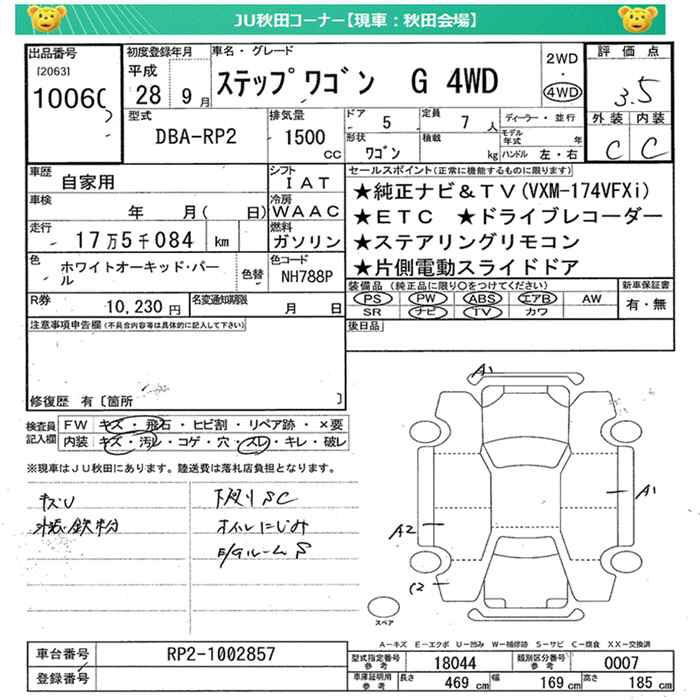 JU秋田コーナー【現車：秋田会場】
出品番号
[2063]
1006
初度登録年月
平成
28年9月
車名・グレード
ステップ ワゴン G 4WD
2WD
・
4WD
評価点
3.5
外装 内装
C C
型式
DBA-RP2
排気量
1500
CC
ドア
5
定員
7人
形状
ワゴン
積載
kg
ディーラー・並行
モデル年式 年
ハンドル 左・右
車歴
自家用
シフト
IAT
車検
年 月( 日)
冷房
WAAC
走行
17万5千084 km
燃料
ガソリン
色
ホワイトオーキッド・パール
色替
色コード
NH788P
R券
10,230円
名変通知期限
月 日
セールスポイント(正常に機能するものに限ります)
★純正ナビ＆TV(VXM-174VFXi)
★ETC ★ドライブレコーダー
★ステアリングリモコン
★片側電動スライドドア
装備品 (純正品に限り○をつけてください)
PS PW ABS エアB AW
SR ナビ TV カワ
新車保証書
有・無
後日品
注意事項申告欄(不具合内容等は具体的に記入して下さい)
修復歴 有〔箇所 〕
検査員記入欄
FW キズ・飛石・ヒビ割・リペア跡・×要
内装 キズ・汚レ・コゲ・穴・スレ・キレ・破レ
※現車はJU秋田にあります。陸送費は落札店負担となります。
キズU
鉄粉
下廻りSC
オイルにじみ
E/GルームS
A1
A1
A2
C2
スペア
A－キズ E－エクボ U－凹み W－補修跡 S－サビ C－腐食 XX－交換済
車台番号
RP2-1002857
登録番号
型式指定番号
参考
18044
類別区分番号
参考
0007
車庫証明用
参考
長さ
469 cm
幅
169 cm
高さ
185 cm